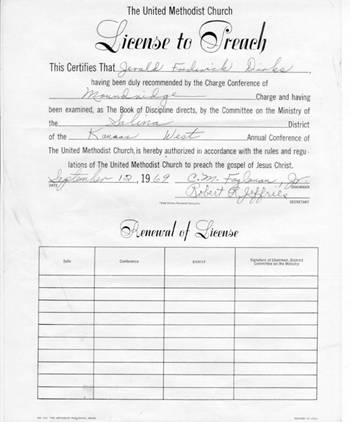 The United Methodist Church
License to Preach
This Certifies That Jerald Frederick Dirks,
having been duly recommended by the Charge Conference of
Moundridge Charge and having
been examined, as The Book of Discipline directs, by the Committee on the Ministry of
the Salina District
of the Kansas West Annual Conference of
The United Methodist Church, is hereby authorized in accordance with the rules and regu-
lations of The United Methodist Church to preach the gospel of Jesus Christ.
September 12, 1969 C.M. Jr.
DATE CHAIRMAN
Robert R. Jeffries
SECRETARY
Renewal of License
Date Conference District Signature of Chairman, District
Committee on the Ministry